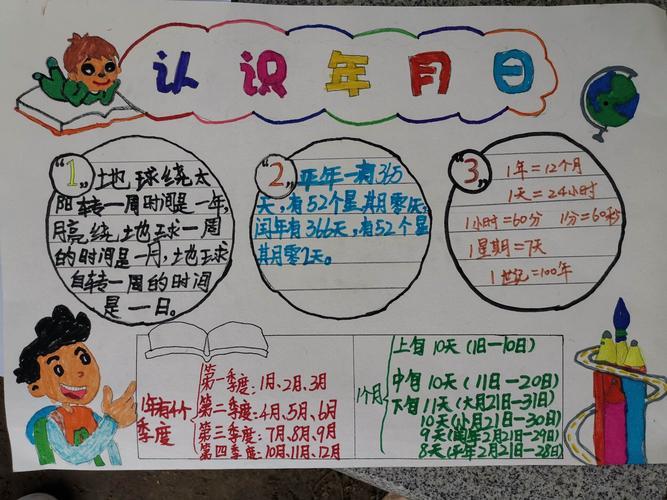 认识年月日
“1”
地球绕太
阳转一周时间是一年,
月亮绕地球一周
的时间是一月,地球
自转一周的时间
是一日。
“2”
平年一有365
天,有52个星期零1天;
闰年有366天,有52个星
期零2天。
“3”
1年=12个月
1天=24小时
1小时=60分 1分=60秒
1星期=7天
1世纪=100年
1年有4个
季度
第一季度:1月、2月、3月
第二季度:4月、5月、6月
第三季度:7月、8月、9月
第四季度:10月、11月、12月
1个月
上旬10天(1日—10日)
中旬10天(11日—20日)
下旬11天(大月21日—31日)
10天(小月21日—30日)
9天(闰年2月21日—29日)
8天(平年2月21日—28日)